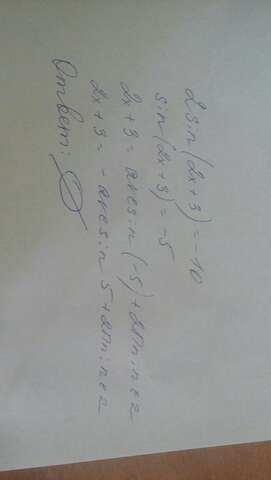 2sin(2x+3)=-10
sin(2x+3)=-5
2x+3=arcsin(-5)+2πn; n∈z
2x+3=-arcsin5+2πn; n∈z
Ответ: ∅